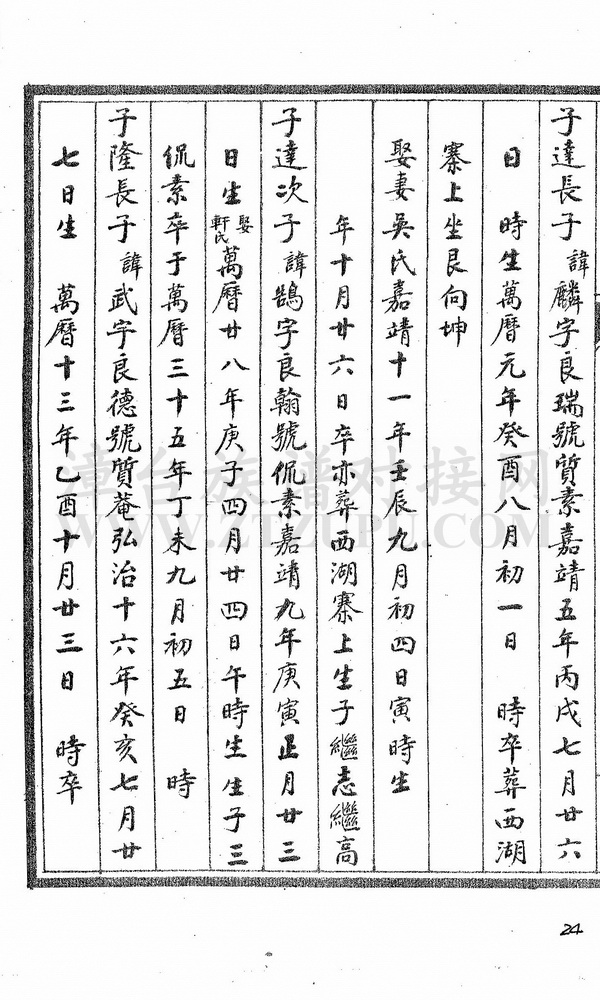 子達長子諱麟字良瑞號質素嘉靖五年丙戌七月廿六
日　時生萬曆元年癸酉八月初一日　時卒葬西湖
寨上坐艮向坤
娶妻吳氏嘉靖十一年壬辰九月初四日寅時生
年十月廿六日卒亦葬西湖寨上生子繼志繼高
子達次子諱鵠字良翰號侃素嘉靖九年庚寅正月廿三
日生娶軒氏萬曆廿八年庚子四月廿四日午時生生子三
侃素卒于萬曆三十五年丁未九月初五日　時
子隆長子諱武字良德號質菴弘治十六年癸亥七月廿
七日生　萬曆十三年乙酉十月廿三日　時卒
漳台族谱对接网
WWW.ZTZUPU.COM
24